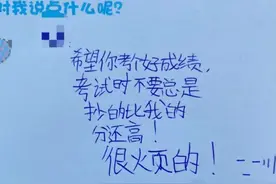 时我说点什么呢?
希望你考个好成绩,
考试时不要总是
抄的比我的
分还高!
很火页的!